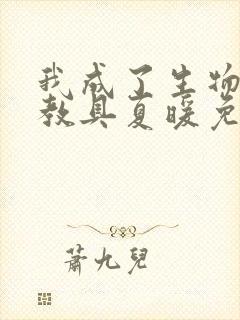 我成了生物
教具夏暖免
萧九兒